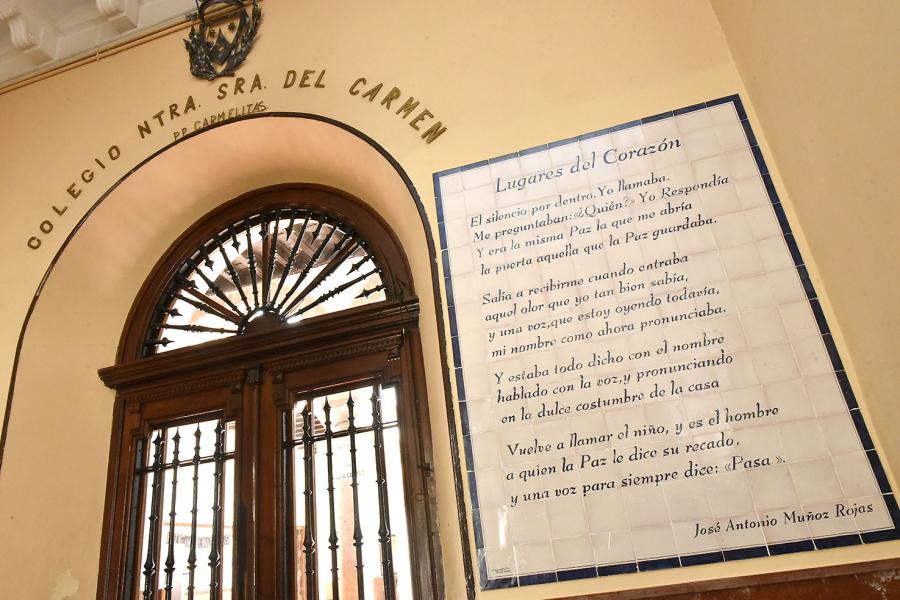 COLEGIO NTRA. SRA. DEL CARMEN
PP. CARMELITAS
Lugares del Corazón
El silencio por dentro. Yo llamaba.
Me preguntaban: «¿Quién?» Yo Respondía
Y era la misma Paz la que me abría
la puerta aquella que la Paz guardaba.
Salía a recibirme cuando entraba
aquel olor que yo tan bien sabía,
y una voz, que estoy oyendo todavía,
mi nombre como ahora pronunciaba.
Y estaba todo dicho con el nombre
hablado con la voz, y pronunciando
en la dulce costumbre de la casa
Vuelve a llamar el niño, y es el hombre
a quien la Paz le dice su recado,
y una voz para siempre dice: «Pasa».
José Antonio Muñoz Rojas